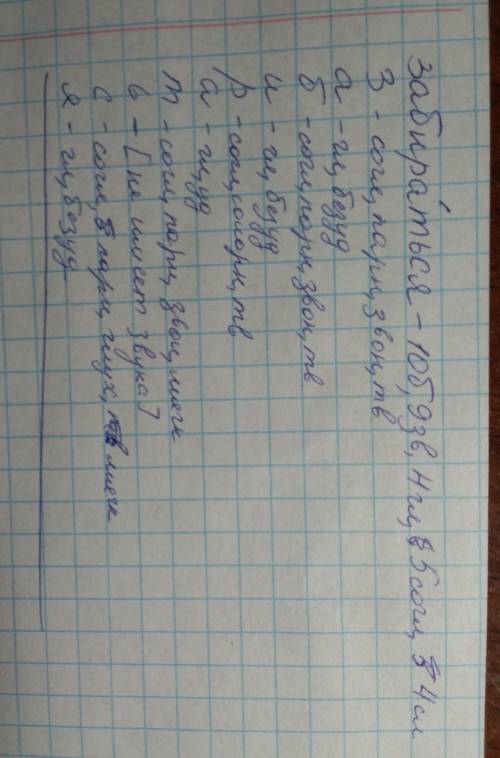 Забира́ться - 10б, 9зв, 4гл, 5согл, 4сл
З - согл, парн, звон, тв
а - гл, безуд
б - согл, парн, звон, тв
и - гл, безуд
р - согл, сонорн, тв
а - гл, уд
т - согл, парн, звон, мягк
ь - [не имеет звука]
с - согл, парн, глух, мягк
я - гл, безуд